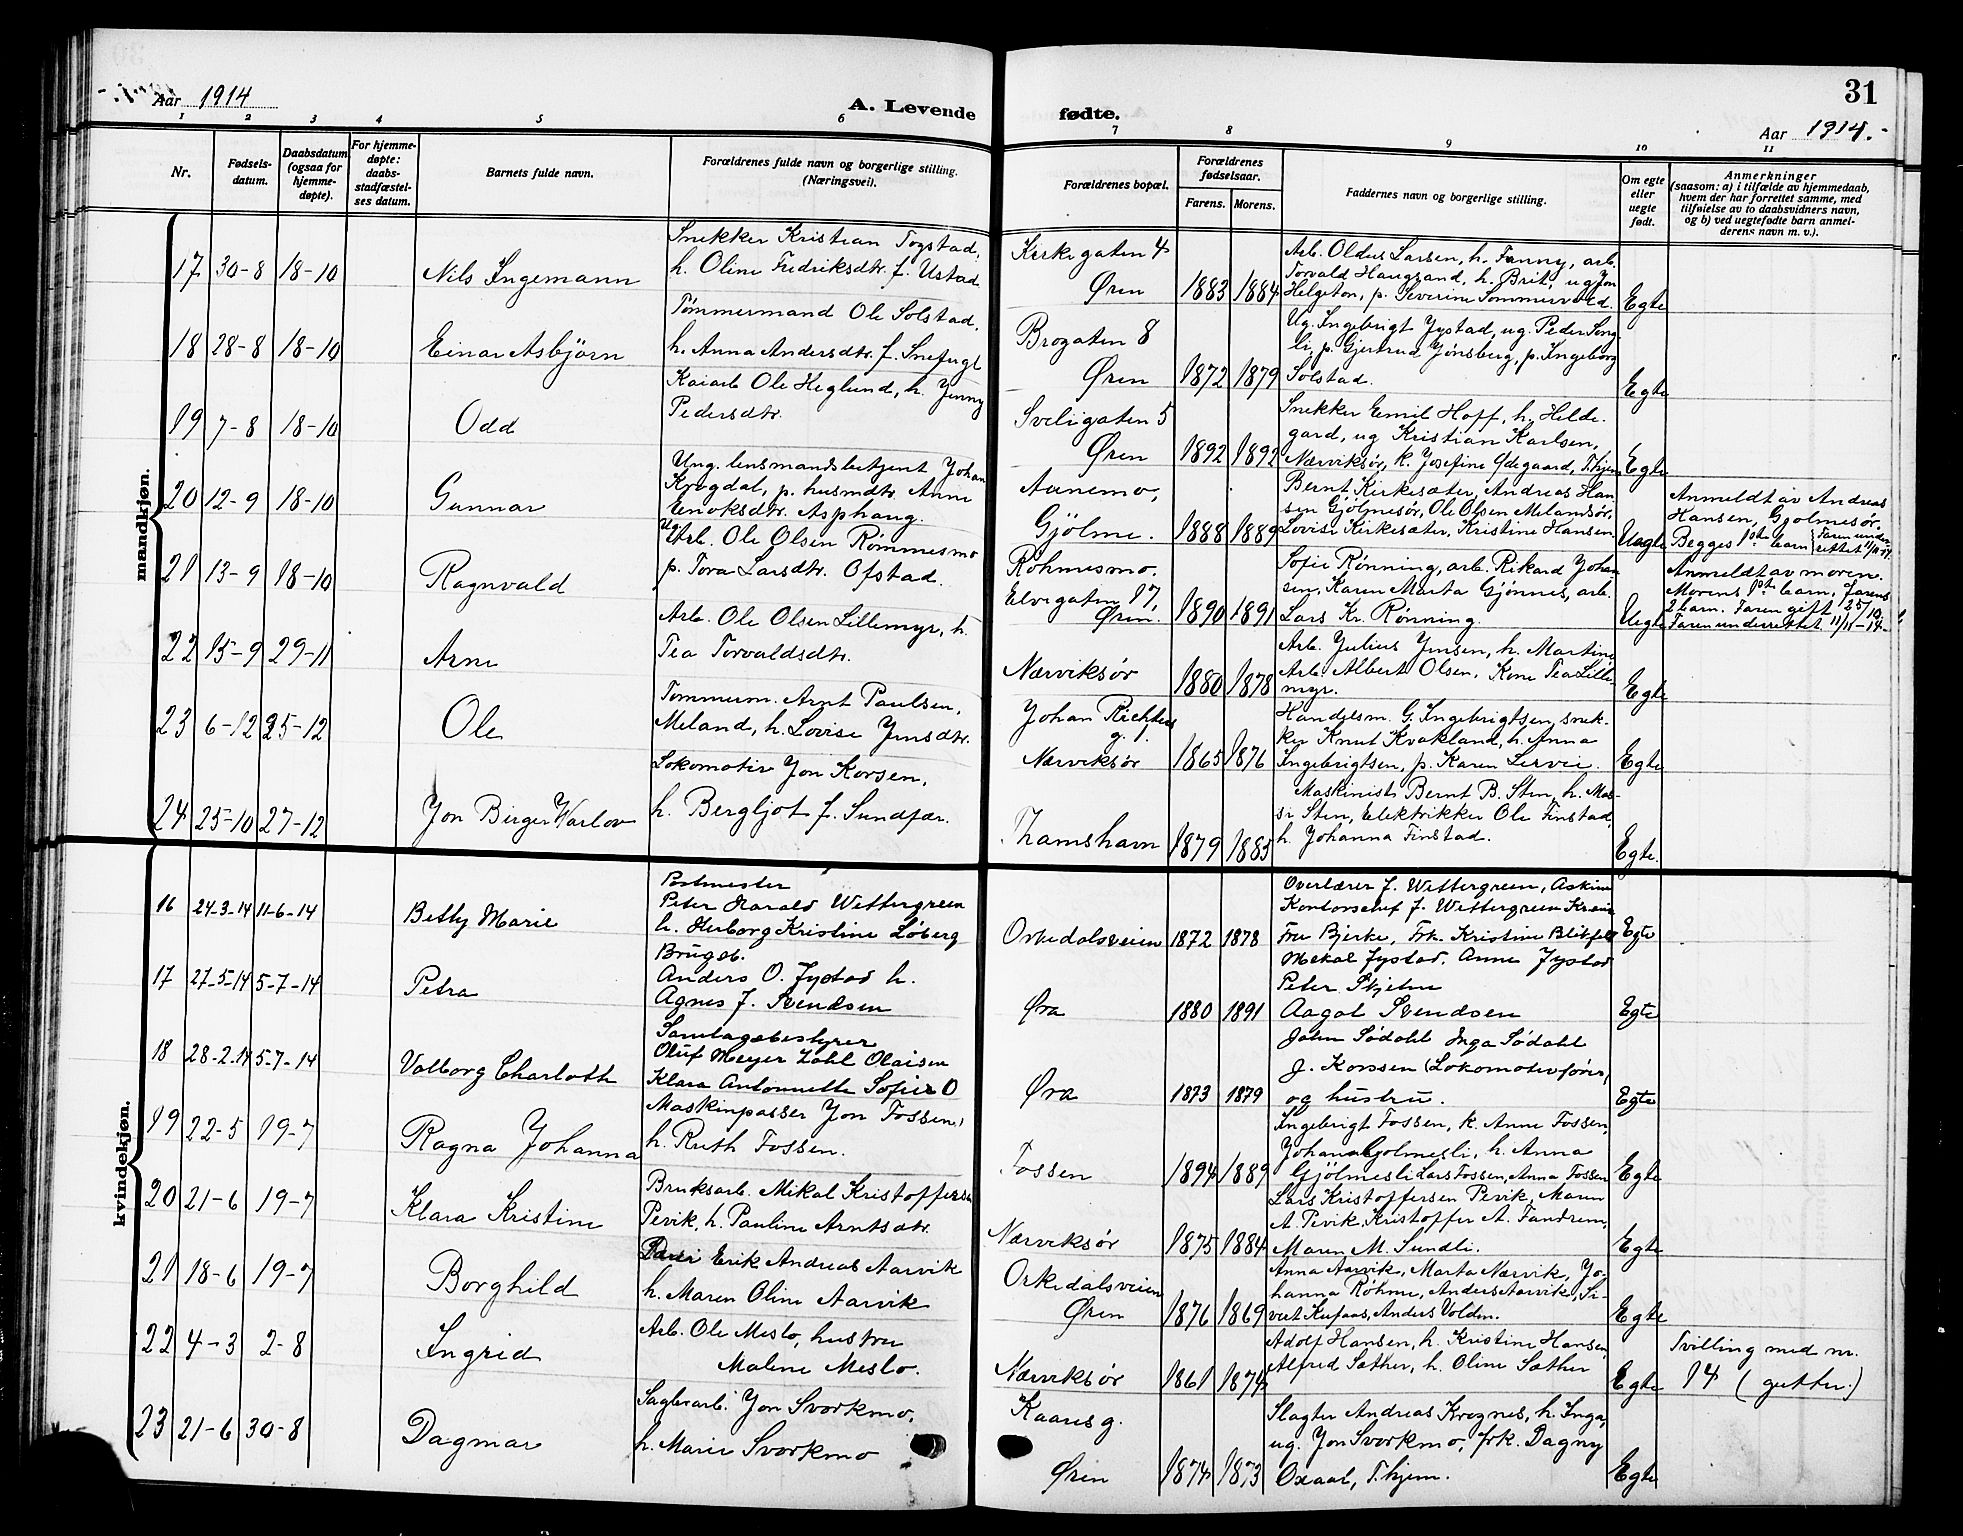 Aar 1914
A. Levende
fødte.
31
Aar 1914.-
1 2 3 4 5 6 7 8 9 10 11
Nr.
Fødsels-
datum.
Daabsdatum
(ogsaa for
hjemme-
døpte).
For hjemme-
døpte:
daabs-
stadfæstel-
ses datum.
Barnets fulde navn.
Forældrenes fulde navn og borgerlige stilling.
(Næringsvei).
Forældrenes bopæl.
Forældrenes
fødselsaar.
Farens. Morens.
Faddernes navn og borgerlige stilling.
Om egte
eller
uegte
født.
Anmerkninger
(saasom: a) i tilfælde av hjemmedaab,
hvem der har forrettet samme, med
tilføielse av to daabsvidners navn,
og b) ved uegtefødte barn anmel-
derens navn m. v.).
mandkjøn.
17 30-8 18-10 Nils Ingemann
Snekker Kristian Togstad,
h. Oline Fredriksdtr. f. Ustad
Kirkegaten 4
Øren 1883 1884
Arb. Oldus Larsen, h. Fanny, arb.
Torvald Haugsand, h. Brit, ug Jon
Helgeton, p. Severine Sommervold.
Egte
18 28-8 18-10 Einar Asbjørn
Tømmermand Ole Solstad,
h. Anna Andersdtr. f. Snefugl
Brogaten 8
Øren 1872 1879
Ug. Ingebrigt Jystad, ug. Peder Song-
li, p. Gjertrud Jönsberg, p. Ingeborg
Solstad.
Egte
19 7-8 18-10 Odd
Kaiarb Ole Heglund, h. Jenny
Pedersdtr.
Sveligaten 5
Øren 1892 1892
Snekker Emil Hoff, h. Hilde-
gard, ug Kristian Karlsen,
Nærviksør, k. Josefine Ødegaard, T.hjem
Egte
20 12-9 18-10 Gunnar
Ung. lensmandsbetjent Johan
Krogdal, p. husmdtr. Anne
Enoksdtr. Asphaug.
Aunemo,
Gjölme. 1888 1889
Bernt Kirkesæter, Andreas Han-
sen Gjölmesör, Ole Olsen Melandsör,
Lovise Kirkesæter, Kristine Hansen.
Uegte
Anmeldt av Andreas
Hansen, Gjølmesör.
Begges 1ste barn (Faren under-
rettet 11/11-14.
21 13-9 18-10 Ragnvald
Ug. Arb. Ole Olsen Rømmesmo
p. Tora Larsdtr. Ofstad.
Røhmesmo.
Elvegaten 17,
Øren. 1890 1891
Sofie Rønning, arb. Rikard Johan-
sen, Karen Marta Gjönnes, arb.
Lars Kr. Rønning.
Uegte
Anmeldt av moren.
Morens 1ste barn, farens
2 barn. Faren gift 25/10.
Faren underrettet 11/11-14-
22 15-9 29-11 Arne
Arb. Ole Olsen Lillemyr, h.
Tea Torvaldsdtr.
Nærviksør 1880 1878
Arb. Julius Jensen, h. Martine,
Arb. Albert Olsen, Kone Tea Lille-
myr.
Egte
23 6-12 25-12 Ole
Tømmerm. Arnt Paulsen,
Meland, h. Lovise Jensdtr.
Johan Richters
g.
Nærviksør 1865 1876
Handelsm. G. Ingebrigtsen, snek-
ker Knut Kvakland, h. Anna
Ingebrigtsen, p. Karen Lervie.
Egte
24 25-10 27-12 Jon Birger Warlov
Lokomotiv Jon Korsen,
h. Bergljot f. Sundfær.
Thamshavn 1879 1885
Maskinist Bernt B. Sten, h. Mas-
si Sten, Elektrikker Ole Finstad,
h. Johanna Finstad.
Egte.
kvindekjøn.
16 24-3-14 11-6-14 Betty Marie
Postmester
Peter Harald Wettergreen
h. Herborg Kristine Løberg
Orkedalsveien 1872 1878
Overlærer J. Wettergreen, Askim
Kontorschef J. Wettergreen
Fru Bjerke, Frk. Kristine
Egte
17 27-5-14 5-7-14 Petra
Brugsb.
Anders O. Jystad h.
Agnes f. Svendsen
Øra 1880 1891
Mekal Jystad. Anne Jystad
Peter Skjelm
Aagot Svendsen
Egte
18 28-2-14 5-7-14 Valborg Charlotte
Samlagsbestyrer
Oluf Meyer Zahl Olaisen
Klara Antonnette Sofie O
Øra 1873 1879
John Södahl Inga Södahl
J. Korssen (Lokomotivförer)
og hustru.
Egte
19 22-5 19-7 Ragna Johanna
Maskinpasser Jon Fossen,
h. Ruth Fossen.
Fossen 1894 1889
Ingebrigt Fossen, k. Anne Fossen,
Johan Gjølmesli, h. Anna
Gjölmesli Lars Fossen, Anna Fossen
Egte
20 21-6 19-7 Klara Kristine
Bruksarb. Mikal Kristoffersen
Pevik, h. Pauline Arntsdtr.
Nærviksør 1875 1884
Lars Kristoffersen Pevik, Maren
A. Pevik, Kristoffer A. Fandrem,
Maren M. Sundli.
Egte
21 18-6 19-7 Borghild
Erik Andreas Aarvik
h. Maren Oline Aarvik
Orkedalsveien
Øren 1876 1869
Anna Aarvik, Marta Nærvik, Jo-
hanna Røhme, Anders Aarvik, Si-
vert Kufaas, Anders Volden.
Egte
22 4-3 2-8 Ingrid
Arb. Ole Meslo, hustru
Malene Meslo.
Nærviksør 1861 1874
Adolf Hansen, h. Kristine Hansen,
Alfred Sæther, h. Oline Sæther
Egte
Tvilling med nr.
14 (gutter.)
23 21-6 30-8 Dagmar
Sagbrarb. Jon Svorkmo,
h. Marie Svorkmo
Kaares g.
Øren 1874 1873
Slagter Andreas Krognes, h. Inga,
ug. Jon Svorkmo, frk. Dagny
Oxaal, T.hjem.
Egte